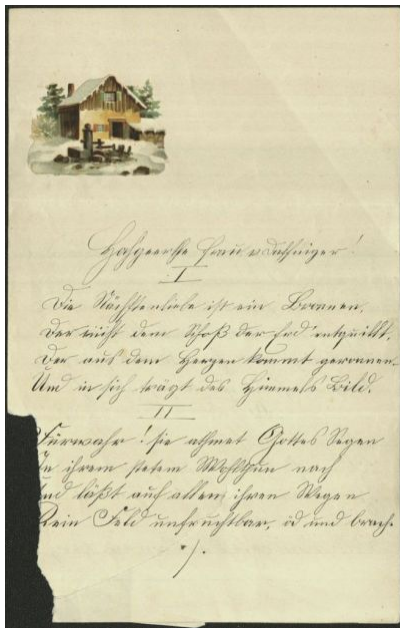 Hochgeehrte Frau v.
I
Die Nächstenliebe ist ein Bronnen,
Der nicht dem Schoß der Erd' entquillt,
Der aus dem Herzen kommt geronnen
Und in sich trägt des Himmels Bild.
II
Fürwahr! sie athmet Gottes Segen
In ihrem stetem Wohlthun nach
Und läßt auf allen ihren Wegen
Kein Feld unfruchtbar, öd und brach.
./.